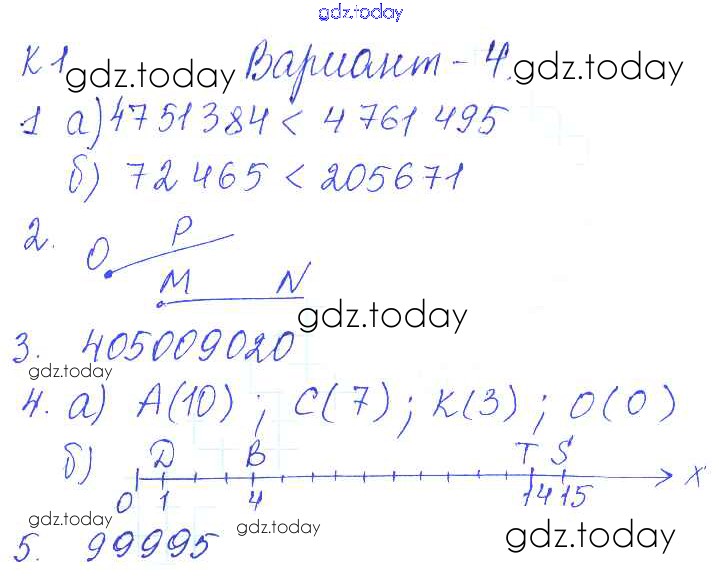 gdz.today
К 1 Вариант - 4.
gdz.today gdz.today
1 а) 4751384 < 4 761 495
б) 72 465 < 205671
2. O P
M N
gdz.today
3. 405009020
gdz.today gdz.today
4. а) A(10) ; C(7) ; K(3) ; O(0)
б) D B T S
0 1 4 14 15 X
gdz.today gdz.today gdz.today
5. 99995